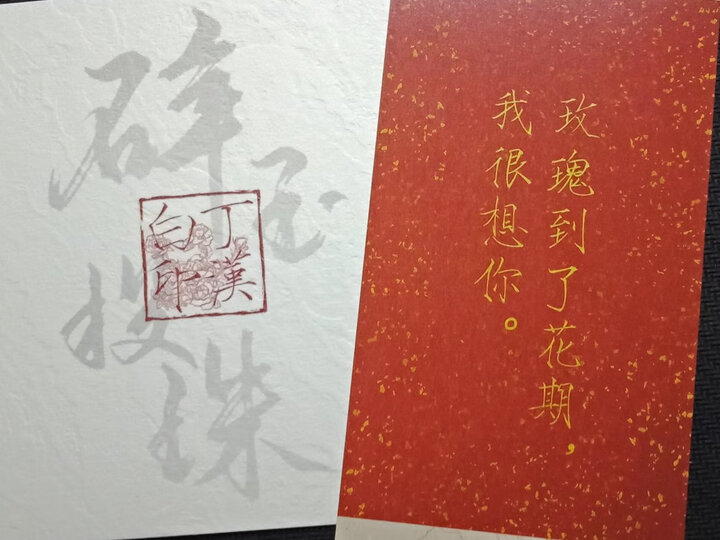 碎玉投珠
丁漢
白印
玫瑰到了花期，
我很想你。